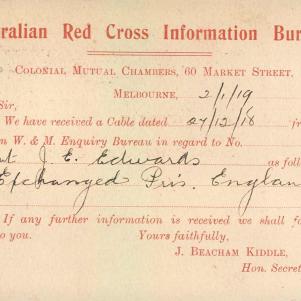 ralian Red Cross Information Bur
COLONIAL MUTUAL CHAMBERS, 60 MARKET STREET,
MELBOURNE, 2/1/19
Sir,
We have received a Cable dated 27/12/18 f
n W. & M. Enquiry Bureau in regard to No.
t J. E. Edwards as follo
Exchanged Pris. Englan
If any further information is received we shall fo
to you. Yours faithfully,
J. BEACHAM KIDDLE,
Hon. Secret